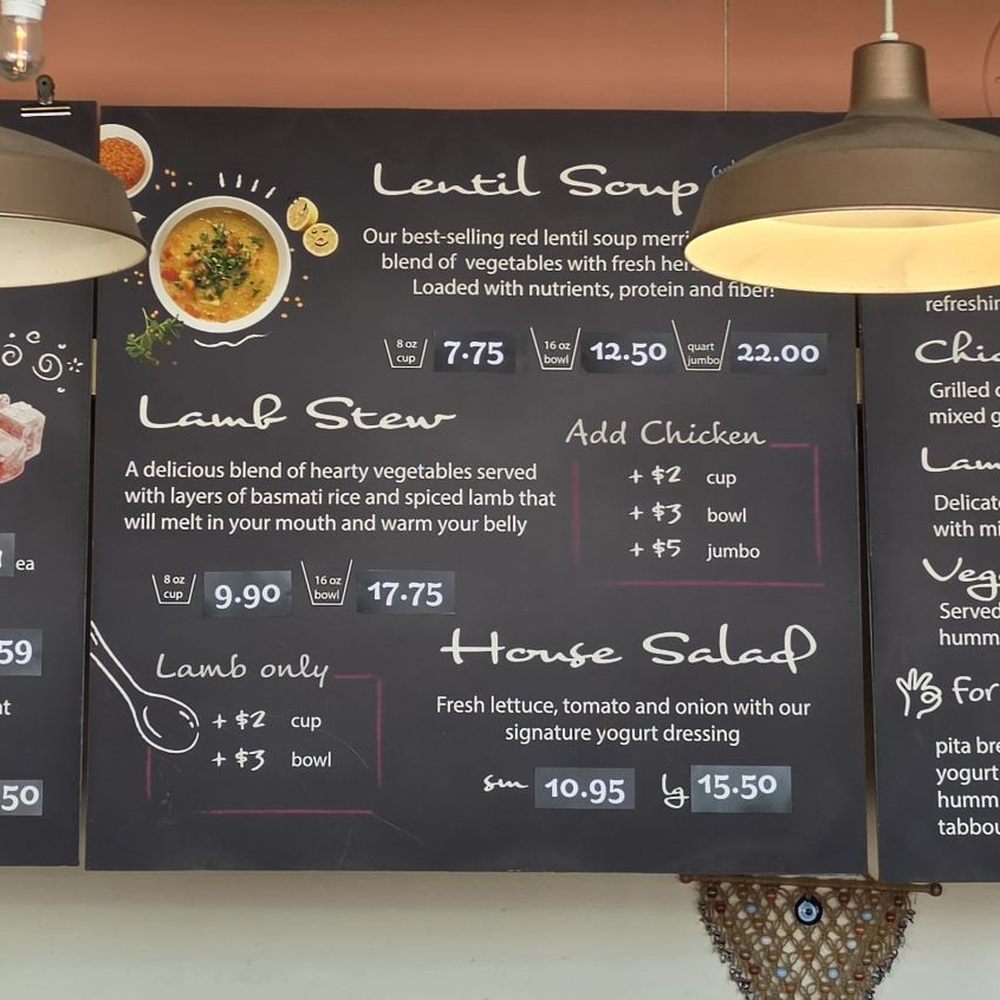 Lentil Soup
Our best-selling red lentil soup
blend of vegetables with fresh
Loaded with nutrients, protein and fiber!
8 oz cup 7.75 16 oz bowl 12.50 quart jumbo 22.00
Lamb Stew
A delicious blend of hearty vegetables served
with layers of basmati rice and spiced lamb that
will melt in your mouth and warm your belly
8 oz cup 9.90 16 oz bowl 17.75
Add Chicken
+ $2 cup
+ $3 bowl
+ $5 jumbo
Lamb only
+ $2 cup
+ $3 bowl
House Salad
Fresh lettuce, tomato and onion with our
signature yogurt dressing
sm 10.95 lg 15.50
ea
59
50
Grilled
mixed
with
Served
For
pita
yogurt